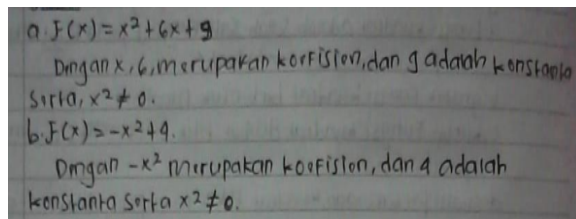 a. f(x) = x² + 6x + 9
Dengan x, 6, merupakan koefision, dan 9 adalah konstanta
serta, x² ≠ 0.
b. f(x) = -x² + 4.
Dengan -x² merupakan koefision, dan 4 adalah
konstanta serta x² ≠ 0.